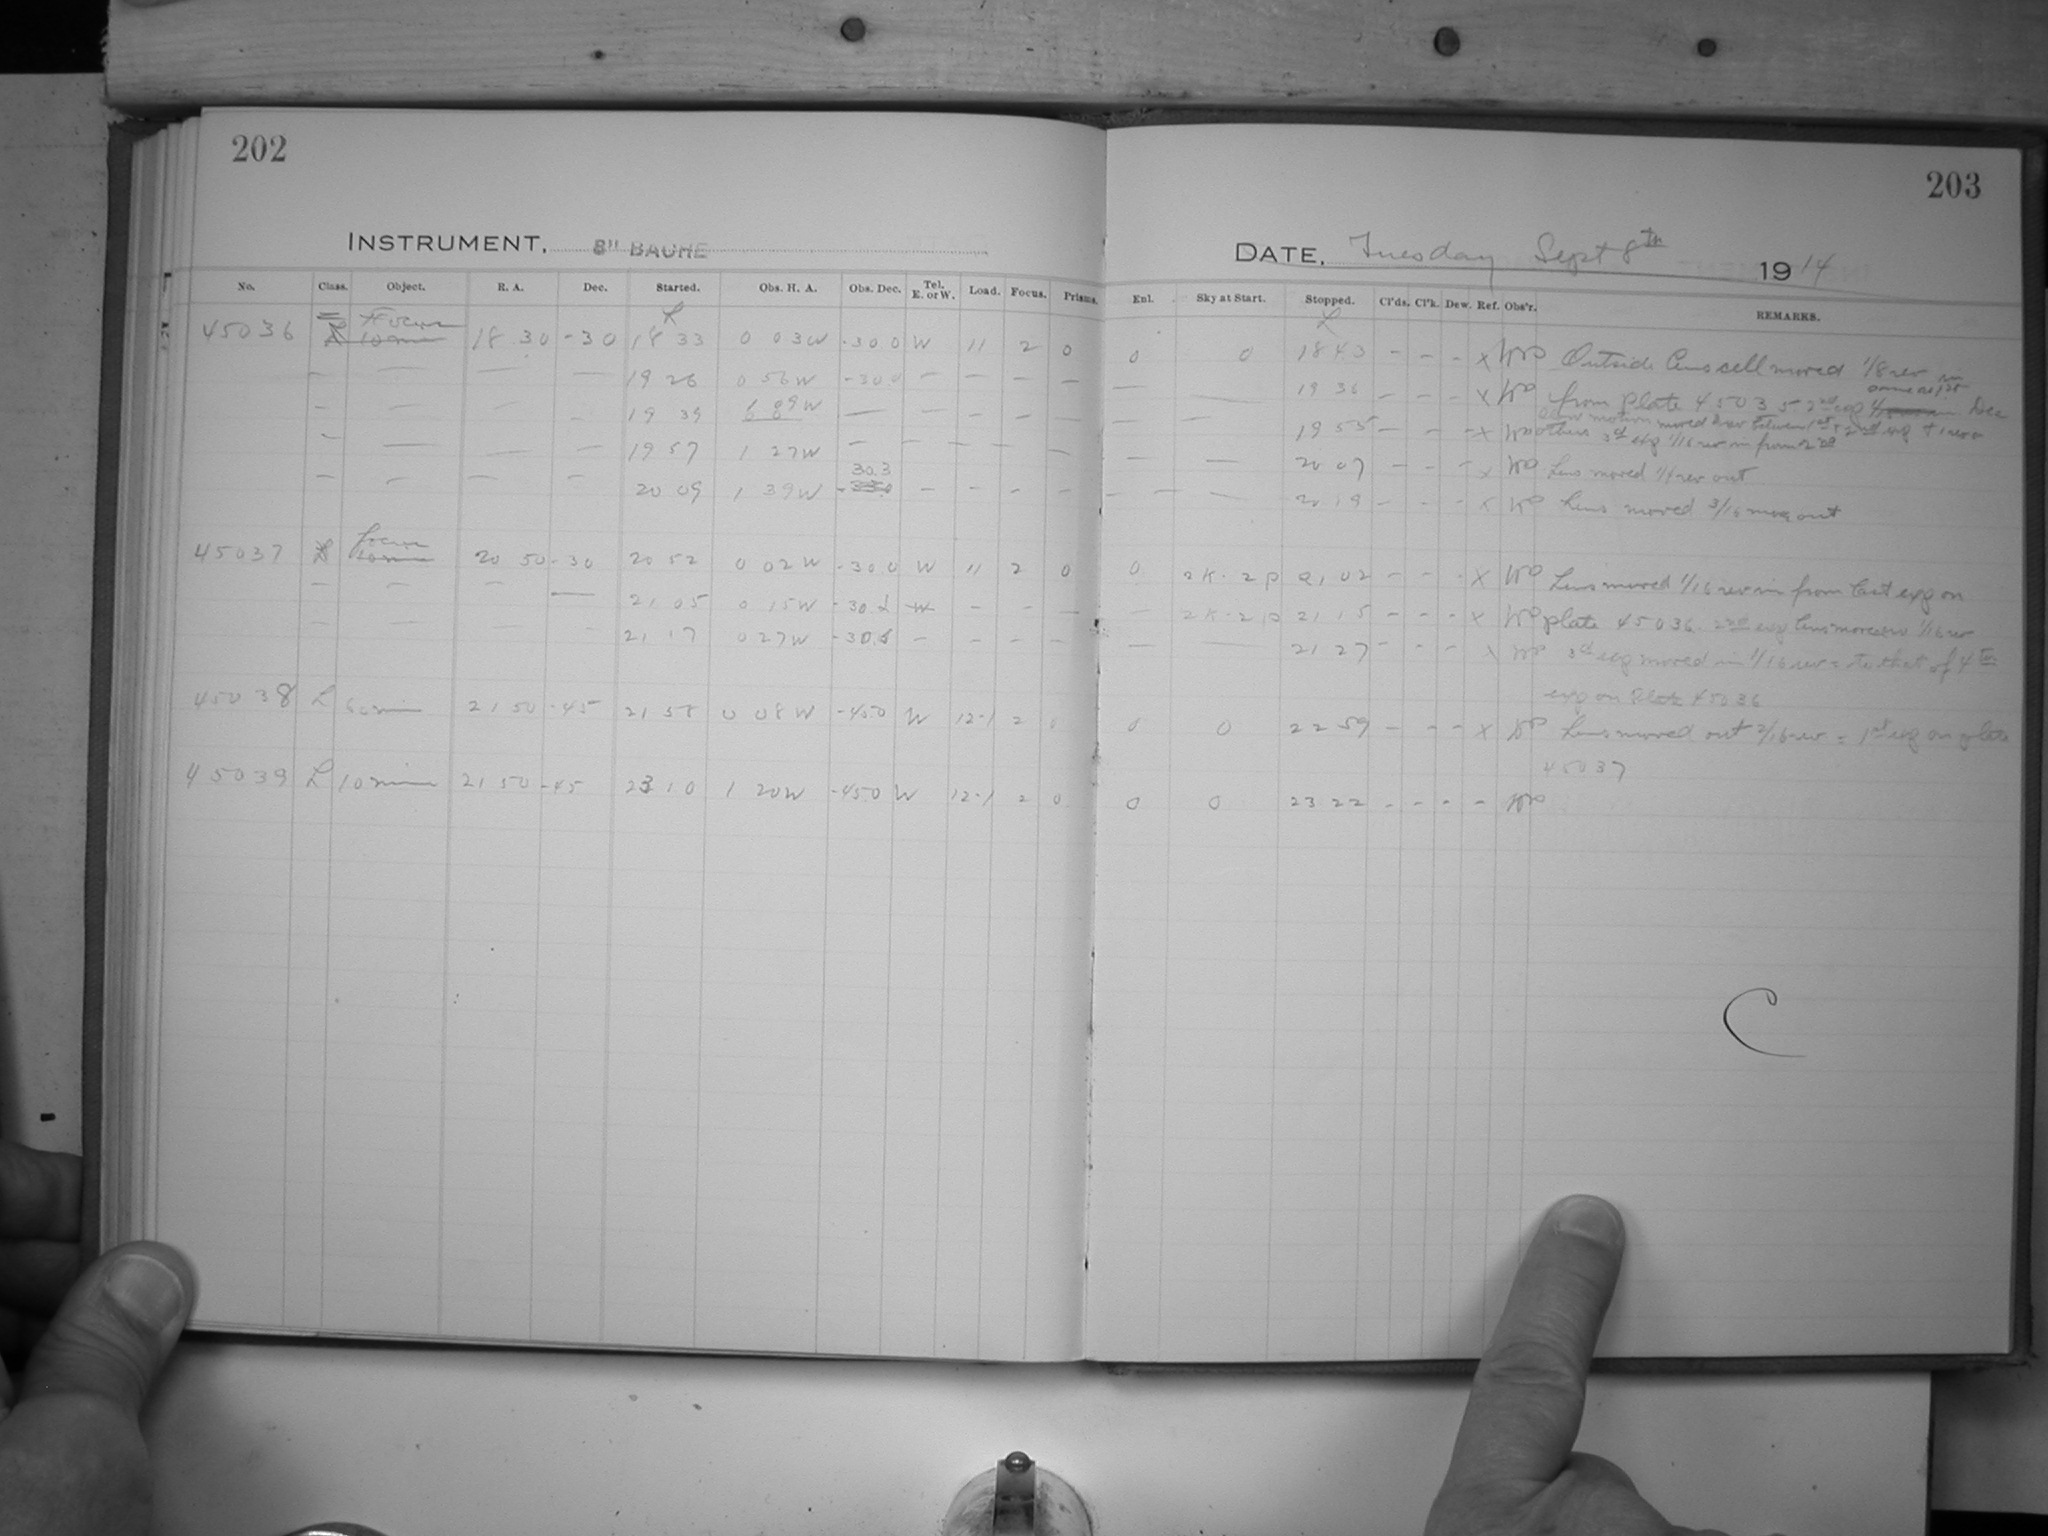 202
203
INSTRUMENT, 8" BACHE
DATE, Tuesday Sept 8th 1914
No. Class. Object. R. A. Dec. Started. Obs. H. A. Obs. Dec. Tel. E. or W. Load. Focus. Prisms. Enl. Sky at Start. Stopped. Cl'ds. Cl'k. Dew. Ref. Obs'r. REMARKS.
Focus
45036 10 min 18 30 -30 18 33 0 03W -30 0 W 11 2 0 0 0 18 43 - - - x Outside lens cell moved 1/8 rev in
— — — — 19 26 0 56W -30 0 — — — — — — 19 36 - - - x from plate 45035 2nd exp same as 1st Dec
slow motion moved between 1st & 2nd exp + 1 rev
— — — — 19 39 1 09W — — — — — — — 19 55 - - - x others 3rd exp 1/16 rev in from 2nd
— — — — 19 57 1 27W — — — — — — — 20 07 - - - x Lens moved 1/4 rev out
— — — — 20 09 1 39W 30.3 — — — — — — — 20 19 - - - x Lens moved 3/16 out
focus
45037 10 min 20 50 -30 20 52 0 02W -30 0 W 11 2 0 0 2K-2P 21 02 - - - x Lens moved 1/16 rev in from last exp on
— — — — 21 05 0 15W W — — — — 2K-2P 21 15 - - - x plate 45036. 2nd exp lens moved 1/16 rev
— — — — 21 17 0 27W — — — — — — 21 27 - - - x 3rd exp moved in 1/16 rev = to that of 4th
exp on Plate 45036
45038 L 60 min 21 50 -45 21 58 0 08W -45 0 W 12-1 2 0 0 0 22 59 - - - x Lens moved out 2/16 rev = 1st exp on plate
45037
45039 L 10 min 21 50 -45 23 10 1 20W -45 0 W 12-1 2 0 0 0 23 22 - - - -
C